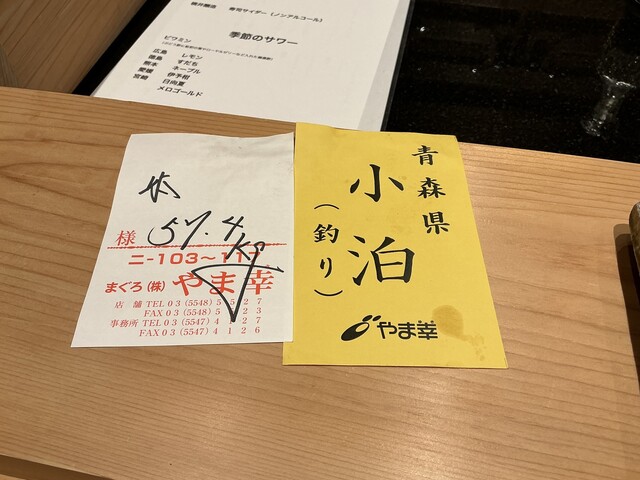 寿司サイダー（ノンアルコール）
季節のサワー
ビワミン
広島 レモン
徳島 すだち
熊本 ネーブル
愛媛 伊予柑
宮崎 日向夏
メロゴールド
様 57.4kg
ニ-103~117
まぐろ(株)やま幸
店舗 TEL 03 (5548) 5527
FAX 03 (5548) 5
事務所 TEL 03 (5547) 4
FAX 03 (5547) 4126
青森県
小泊
(釣り)
やま幸